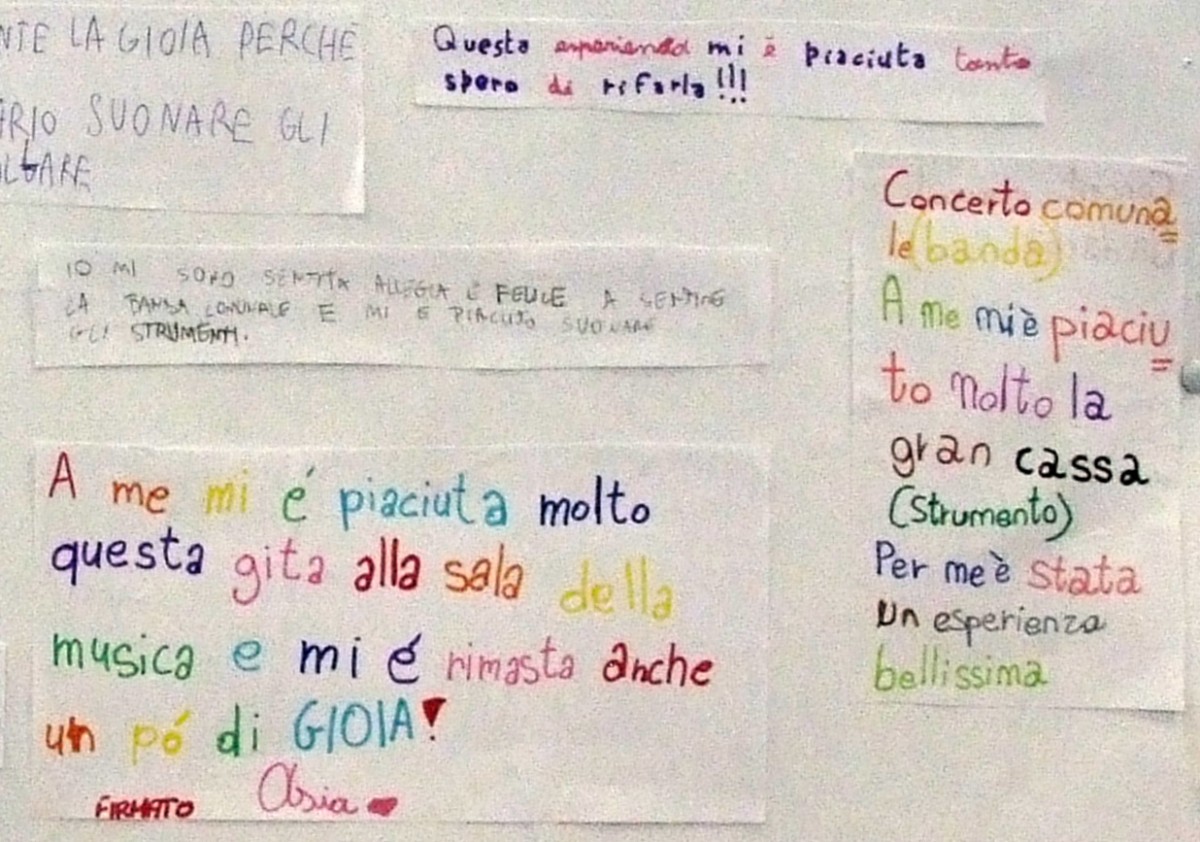 NTE LA GIOIA PERCHÈ
ARIO SUONARE GLI
LTARE
Questa esperienza mi è piaciuta tanto
spero di rifarla!!!
IO MI SONO SENTITA ALLEGRA E FELICE A SENTIRE
LA BANDA COMUNALE E MI E PIACIUTO SUONARE
GLI STRUMENTI.
Concerto comuna=
le (banda)
A me mi è piaciu=
to molto la
gran cassa
(strumento)
Per me è stata
un esperienza
bellissima
A me mi é piaciuta molto
questa gita alla sala della
musica e mi é rimasta anche
un pó di GIOIA!
FIRMATO Asia